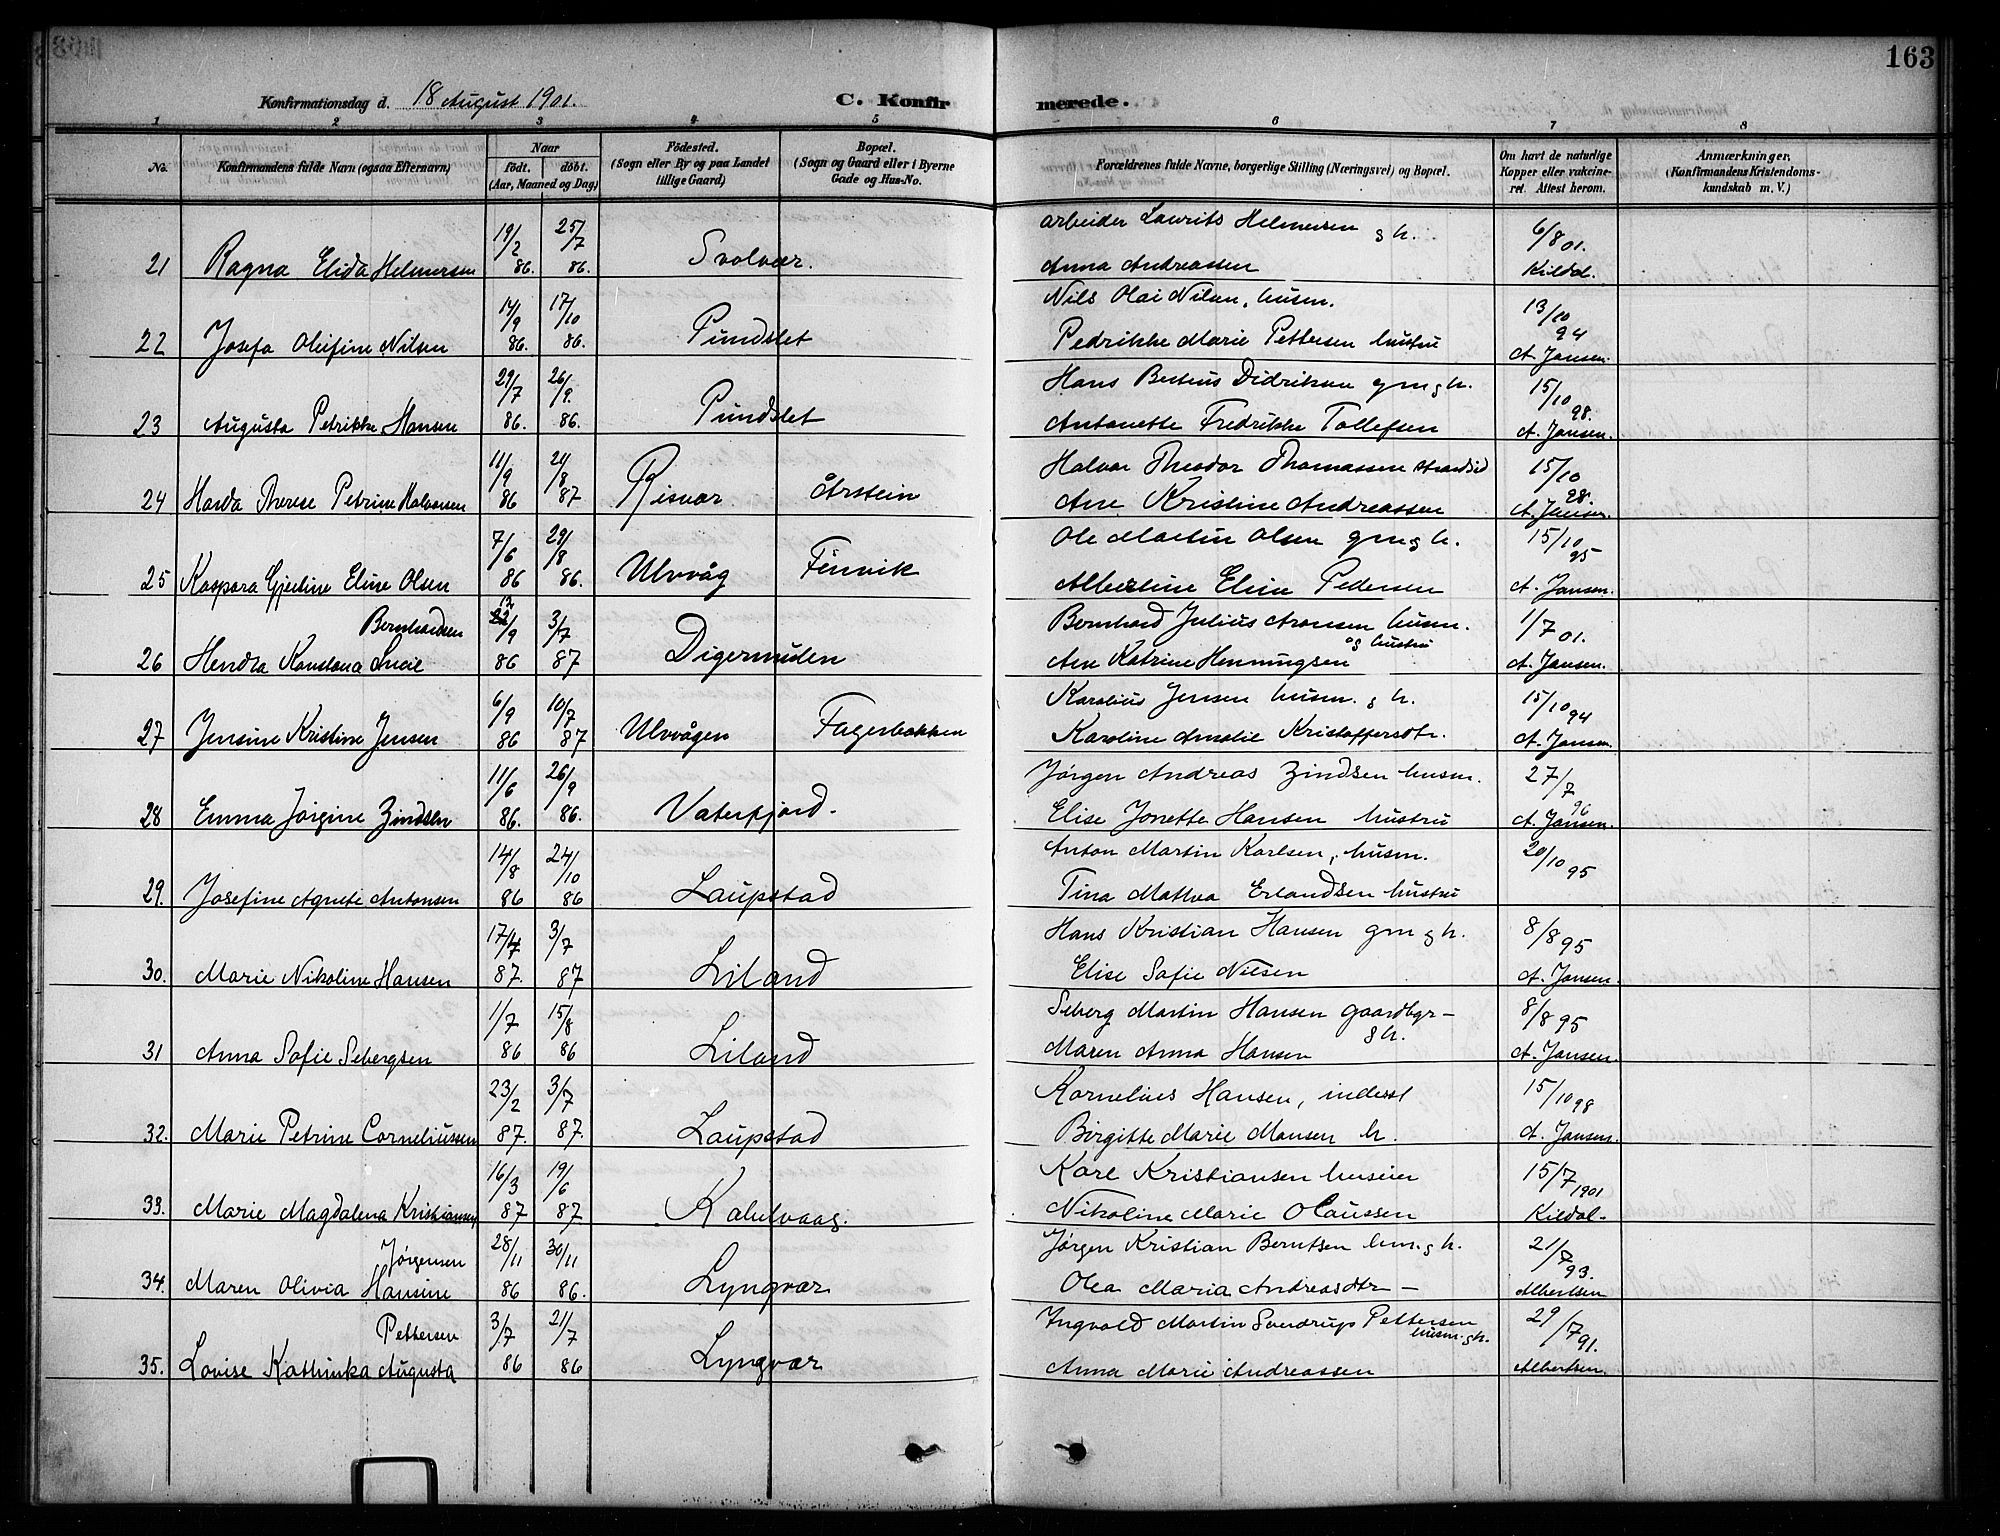 163
Konfirmationsdag d. 18 August 1901. C. Konfirmerede.
1 2 3 4 5 6 7 8
No. Konfirmandens fulde Navn (ogsaa Efternavn) Naar født. døbt. (Aar, Maaned og Dag) Fødested. (Sogn eller By og paa Landet tillige Gaard) Bopæl. (Sogn og Gaard eller i Byerne Gade og Hus-No. Forældrenes fulde Navne, borgerlige Stilling (Næringsvei) og Bopæl. Om havt de naturlige Kopper eller vakcineret. Attest herom. Anmærkninger. (Konfirmandens Kristendomskundskab m. V.)
21 Ragna Elida Helmersen 19/2 86. 25/7 86. Svolvær. arbeider Laurits Helmersen g h. Anna Andreassen 6/8 01. Kildal.
22 Josefa Oleifine Nilsen 14/9 86. 17/10 86. Pundslet Nils Olai Nilsen, husm. Pedrikke Marie Pettersen hustru 13/10 94 A. Jansen.
23 Augusta Petrikke Hansen 29/7 86. 26/9. 86. Pundslet Hans Berteus Didriksen gm g h. Antonette Fredrikke Tollefsen 15/10 98. A. Jansen.
24 Harda Therese Petrine Halvorsen 11/9 86 21/8 87 Risvær Årstein Halvor Theodor Thomassen strandsid Ane Kristine Andreassen 15/10 98. A. Jansen.
25 Kaspara Gjertine Eline Olsen 7/6 86 29/8 86. Ulvvåg Finvik Ole Martin Olsen gm g h. Albertine Elise Pedersen 15/10 95 A. Jansen.
26 Hendta Konstana Lucie Bernhardsen 12/9 86 3/7 87 Digermulen Bernhard Julius Aronsen husm. og hustru Ane Katrine Henningsen 1/7 01. A. Jansen.
27 Jensine Kristine Jensen 6/9 86 10/7 87 Ulvvågen Fagerbakken Karolius Jensen husm. g h. Karoline Amalie Kristoffersdtr. 15/10 94 A. Jansen.
28 Emma Jørgine Zindsen 11/6 86. 26/9 86. Vaterfjord. Jørgen Andreas Zindsen husm. Elise Jonette Hansen hustru 27/7 96 A. Jansen.
29. Josefine Agnete Antonsen 14/8 86 24/10 86 Laupstad Anton Martin Karlsen, husm. Tina Mathea Erlandsen hustru 20/10 95
30. Marie Nikoline Hansen 17/4 87. 3/7 87 Liland Hans Kristian Hansen gm g h. Elise Sofie Nilsen 8/8 95 A. Jansen.
31 Anna Sofie Sebergsen 1/7 86 15/8 86 Liland Seberg Martin Hansen gaardbgr- g h. Maren Anna Hansen 8/8 95 A. Jansen.
32. Marie Petrine Corneliussen 23/2 87. 3/7 87. Laupstad Kornelius Hansen, inderst Birgitte Marie Monsen h. 15/10 98 A. Jansen.
33. Marie Magdalena Kristiansen 16/3 87 19/6 87 Kabelvaag. Karl Kristiansen huseier Nikoline Marie Olaussen 15/7 1901 Kildal.
34. Maren Olivia Hansine Jørgensen 28/11 86 30/11 86. Lyngvær Jørgen Kristian Berntsen hm. g h. Olea Maria Andreasdtr - 21/7 93. Albertsen
35. Lovise Kathinka Augusta Pettersen 3/7 86 21/7 86 Lyngvær Ingvald Martin Sverdrup Pettersen husm. g h. Anna Marie Andreassen 29/7 91. Albertsen.